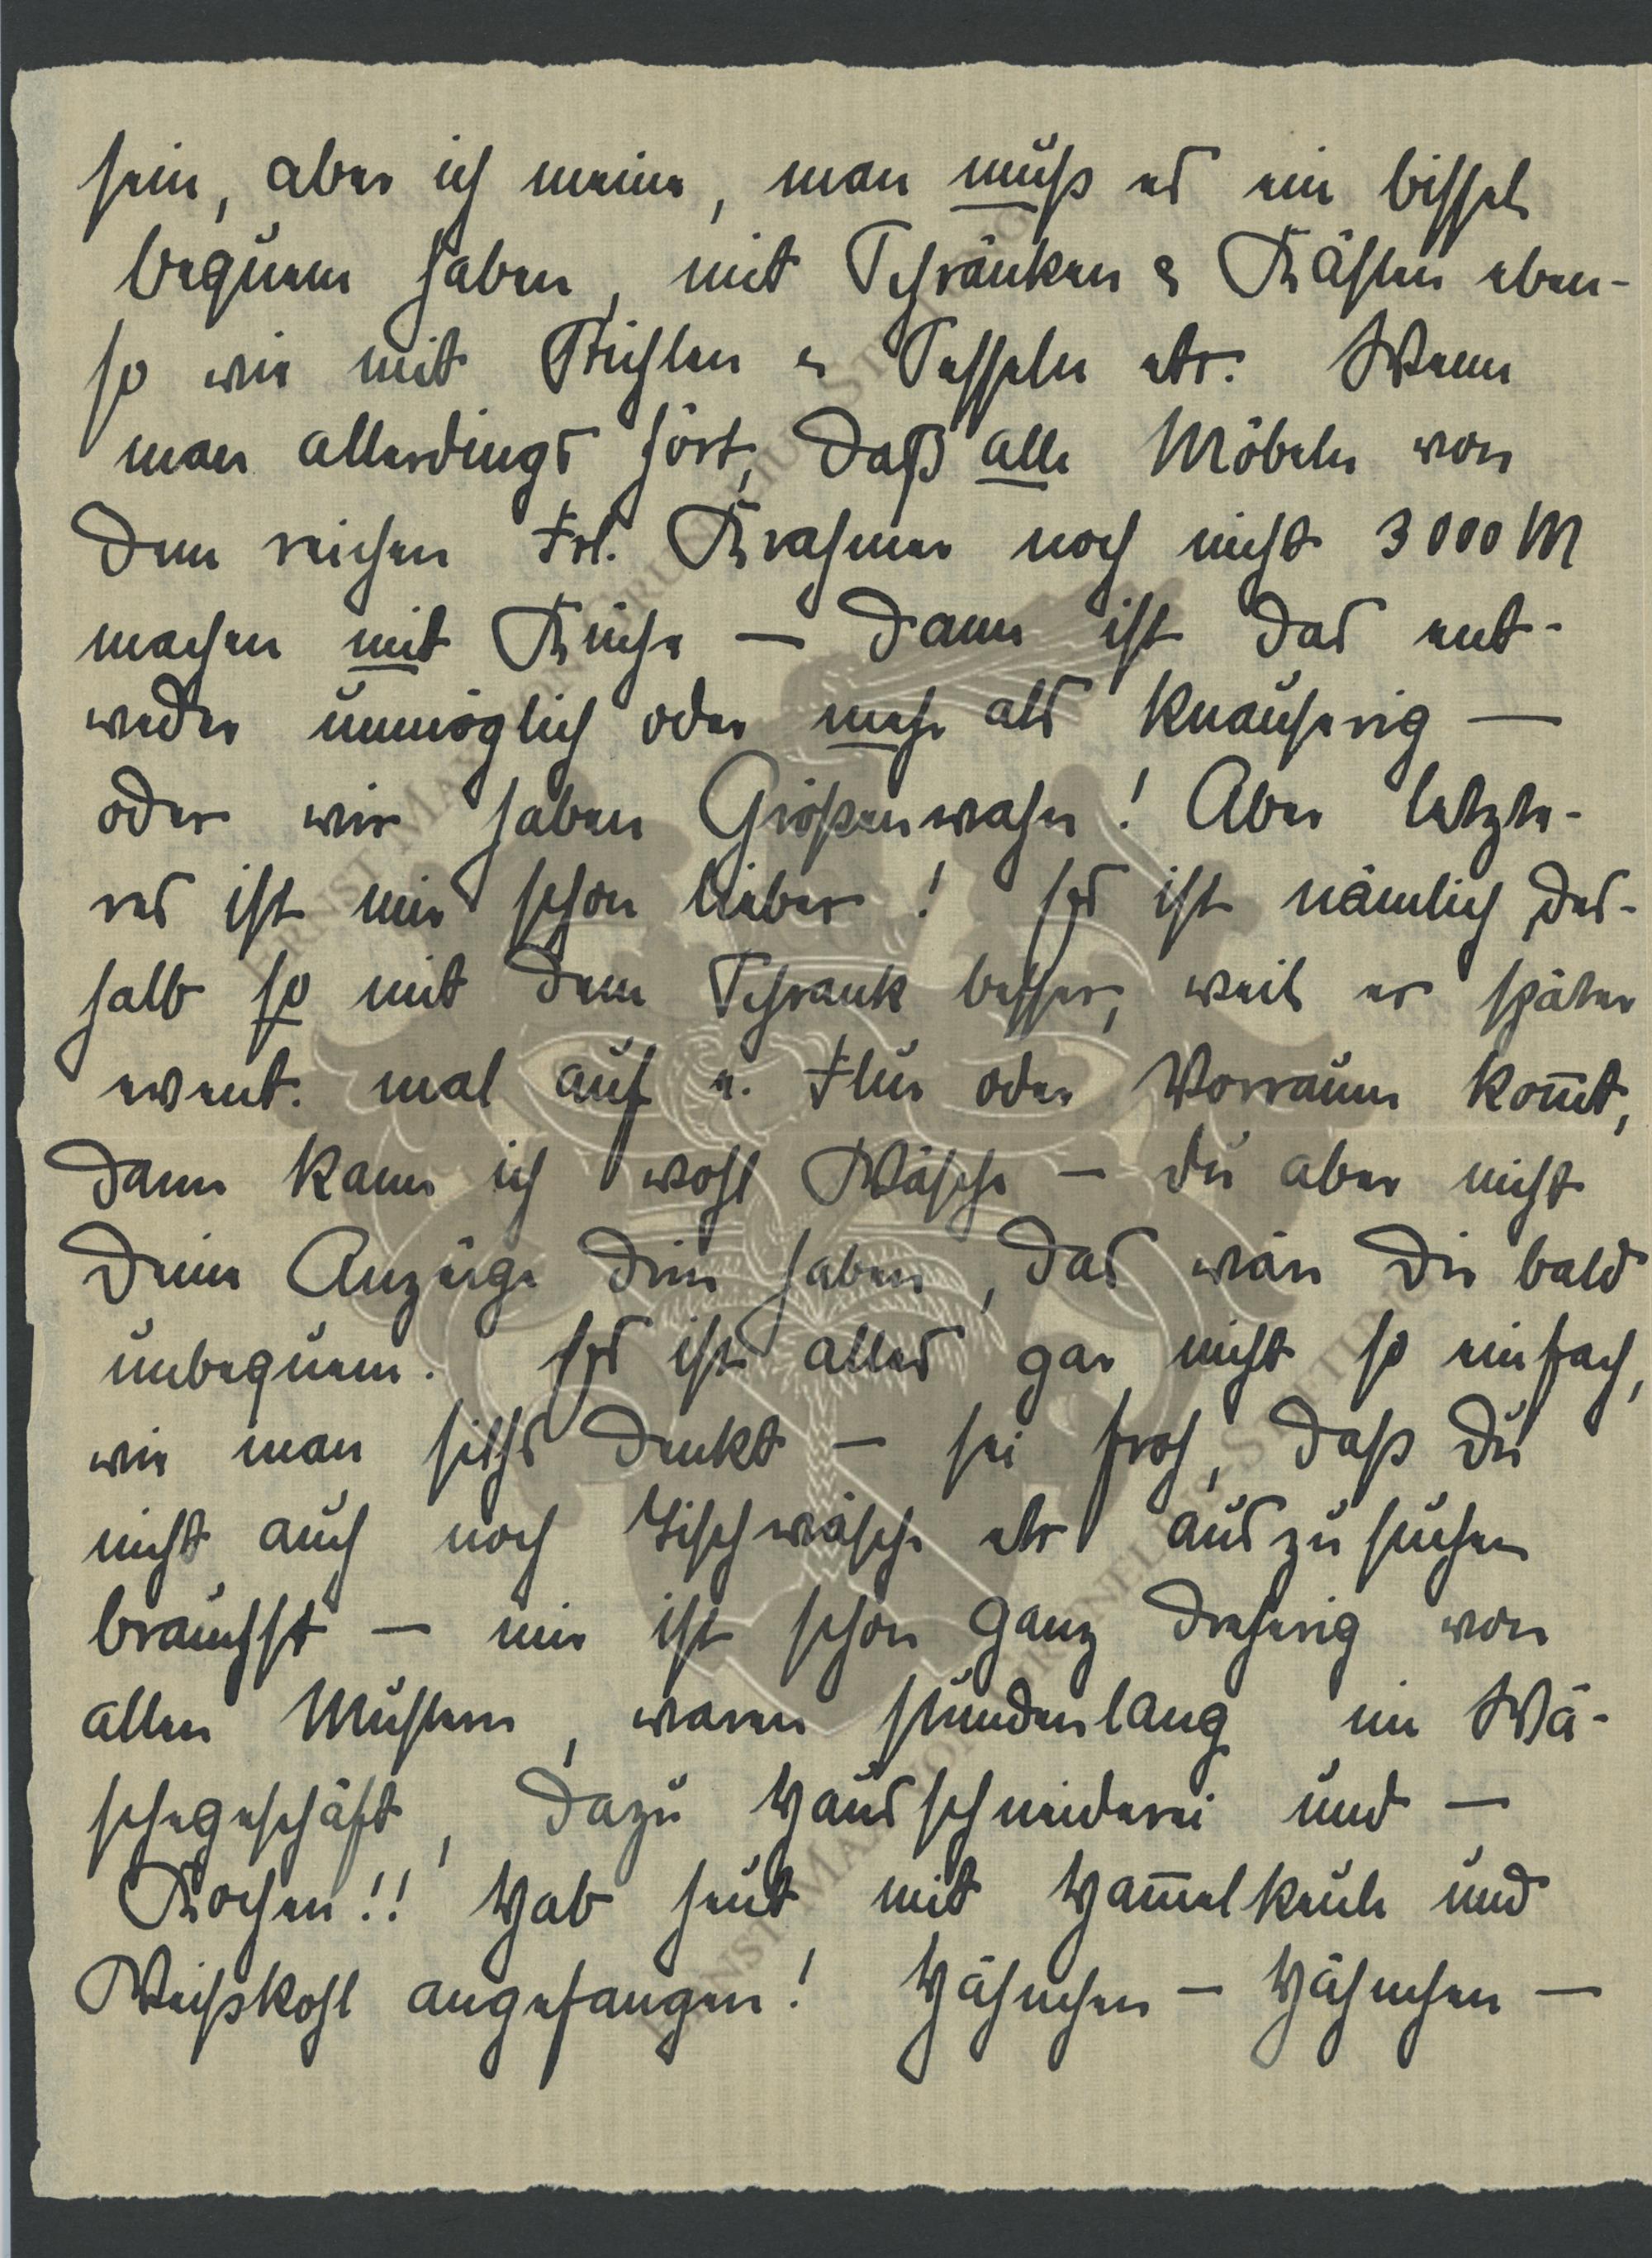 sein, aber ich meine, man muß es ein bissel
bequem haben, mit Schränken & Kästen eben-
so wie mit Stühlen & Sesseln etc. Wenn
man allerdings hört, daß alle Möbeln von
dem reichen Frl. Krahmer noch nicht 3000 M
machen mit Küche — dann ist das ent-
weder unmöglich oder mehr als knauserig —
oder wir haben Größenwahn! Aber letzte-
res ist mir schon lieber! Es ist nämlich des-
halb so mit dem Schrank besser, weil er später
event. mal auf n. Flur oder Vorraum kom̅t,
dann kann ich wohl Wäsche — Du aber nicht
Deine Anzüge drin haben, das wär Dir bald
unbequem. Es ist alles gar nicht so einfach,
wie man sichs denkt — sei froh, daß Du
nicht auch noch Tischwäsche etc auszusuchen
brauchst — mir ist schon ganz dreherig von
allen Mustern, waren stundenlang im Wä-
schegeschäft, dazu Hausschneiderei und —
Kochen!! Hab heut mit Ham̅elkeule und
Weißkohl angefangen! Hähnchen — Hähnchen —